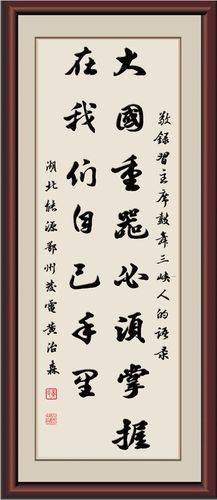 敬録習主席鼓舞三峡人的语录
大國重器必須掌握
在我们自己手里
湖北能源鄂州發電黄治森